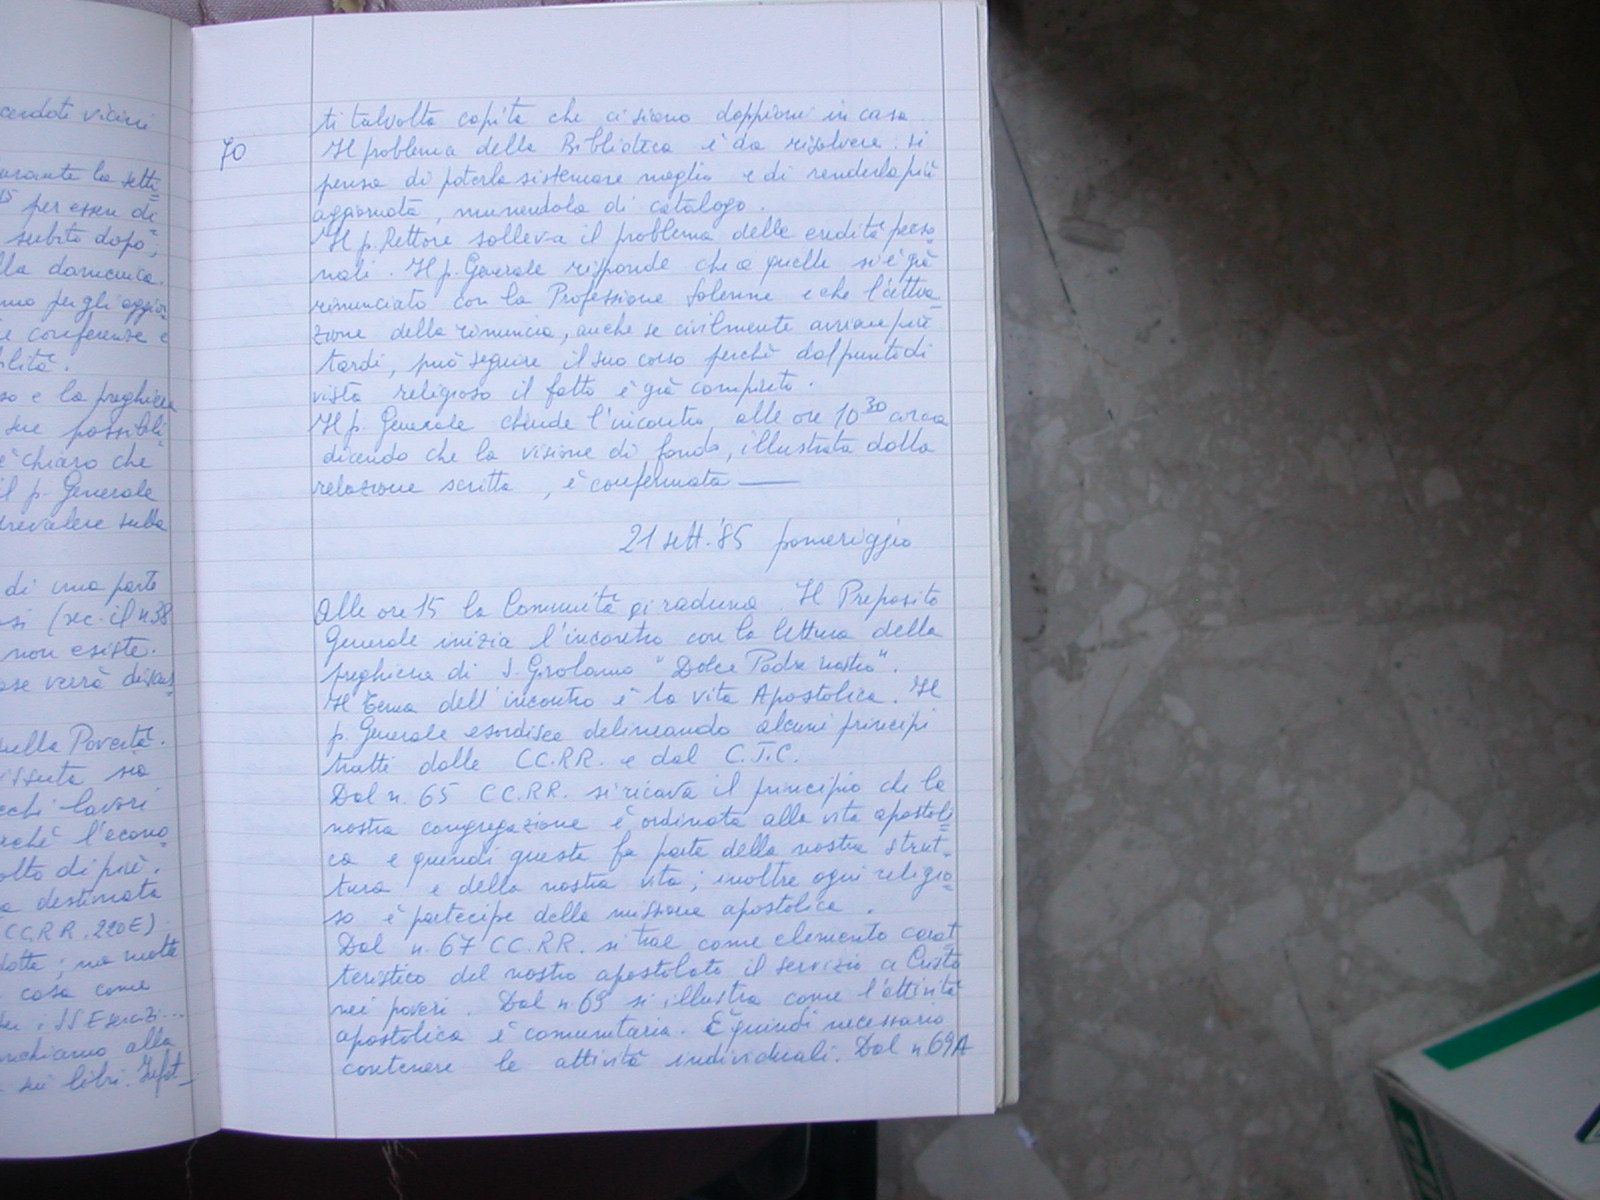 cerdoti vicini
urante la setti=
15 per essere di=
subito dopo,
lla domenica.
mo per gli aggior
e conferenze e
bilità.
so e la preghiera
sue possibili
è chiaro che
il p. Generale
prevalere sulla
di una parte
si (sec. il n 58
non esiste.
ose verrà discus
sulla Povertà.
issuta sia
cchi lavori
rché l'econo
olto di più.
a destinata
CC.RR. 220E)
dotta; ma molta
casa come
SS Esercizi...
nchiamo alla
sui libri. Infat_
70
ti talvolta capita che ci siano doppioni in casa.
Il problema della Biblioteca è da risolvere: si
pensa di poterla sistemare meglio e di renderla più
aggiornata, munendola di catalogo.
Il p. Rettore solleva il problema delle eredità perso_
nali. Il p. Generale risponde che a quelle si è già
rinunciato con la Professione Solenne e che l'attua_
zione della rinuncia, anche se civilmente avviene più
tardi, può seguire il suo corso perchè dal punto di
vista religioso il fatto è già compiuto.
Il p. Generale chiude l'incontro, alle ore 10³⁰ circa
dicendo che la visione di fondo, illustrata dalla
relazione scritta, è confermata ——
21 sett. '85 pomeriggio
Alle ore 15 la Comunità si raduna. Il Preposito
Generale inizia l'incontro con la lettura della
preghiera di S. Girolamo "Dolce Padre nostro".
Il tema dell'incontro è la vita Apostolica. Il
p. Generale esordisce delineando alcuni principi
tratti dalle CC.RR. e dal C.J.C.
Dal n. 65 CC.RR. si ricava il principio che la
nostra congregazione è ordinata alla vita apostoli=
ca e quindi questa fa parte della nostra strut_
tura e della nostra vita; inoltre ogni religio_
so è partecipe della missione apostolica.
Dal n. 67 CC.RR. si trae come elemento carat
teristico del nostro apostolato il servizio a Cristo
nei poveri. Dal n 69 si illustra come l'attività
apostolica è comunitaria. È quindi necessario
contenere le attività individuali. Dal n 69A